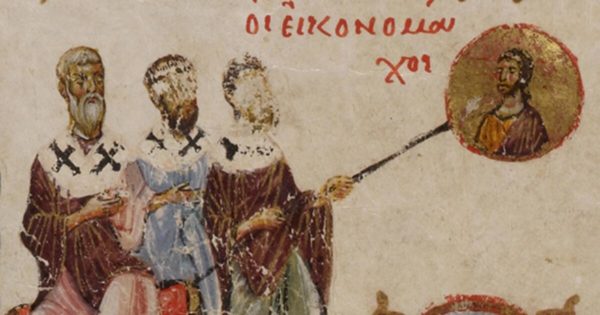 ΟΙ ἘΙΚΟΝΟΜΑ
ΧΟΙ